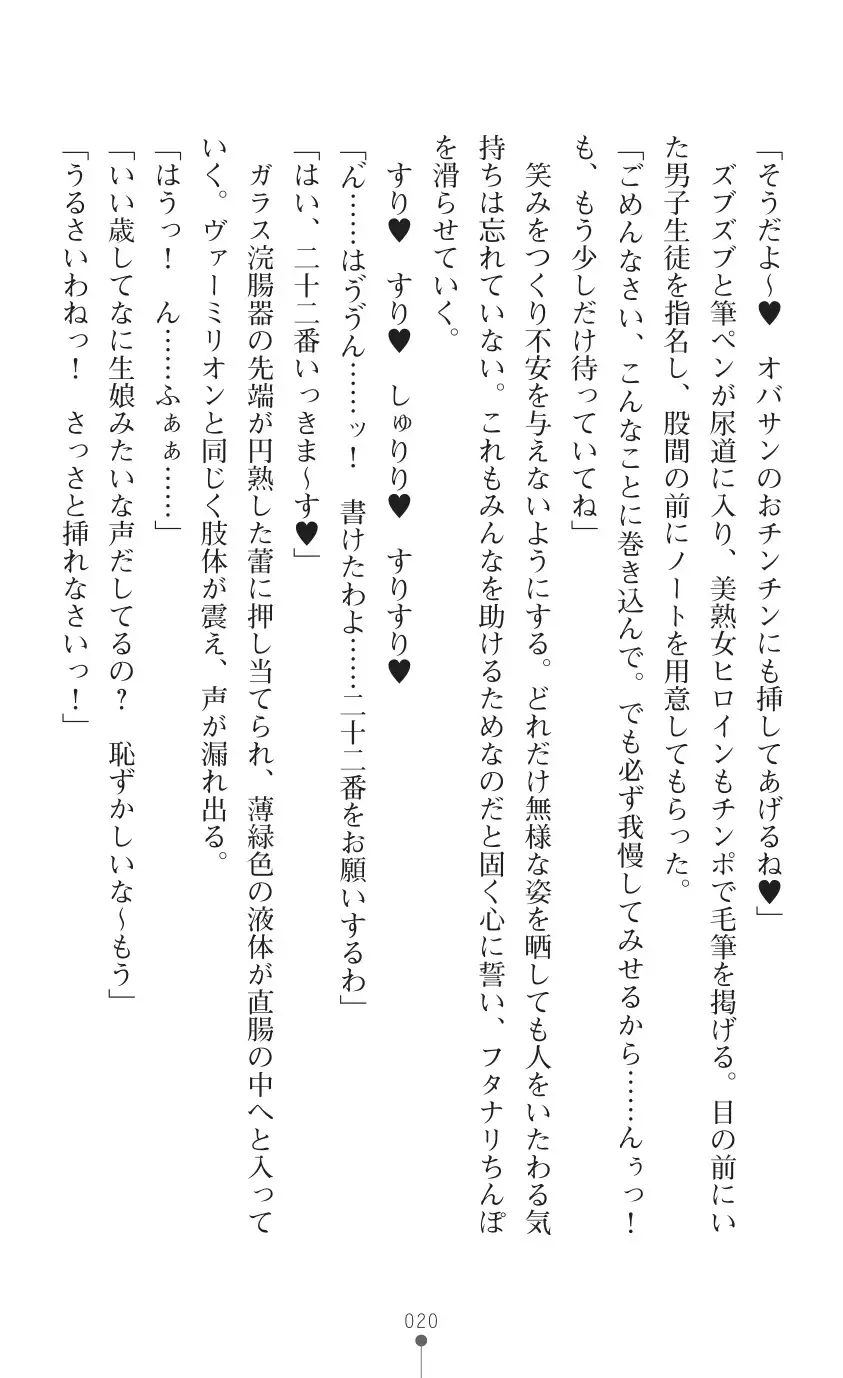 「そうだよ〜♥　オバサンのおチンチンにも挿してあげるね♥」
　ズブズブと筆ペンが尿道に入り、美熟女ヒロインもチンポで毛筆を掲げる。目の前にい
た男子生徒を指名し、股間の前にノートを用意してもらった。
「ごめんなさい、こんなことに巻き込んで。でも必ず我慢してみせるから……んぅっ！
も、もう少しだけ待っていてね」
　笑みをつくり不安を与えないようにする。どれだけ無様な姿を晒しても人をいたわる気
持ちは忘れていない。これもみんなを助けるためなのだと固く心に誓い、フタナリちんぽ
を滑らせていく。
　すり♥　すり♥　しゅりり♥　すりすり♥
「ん゛……はう゛う゛ん……ッ！　書けたわよ……二十二番をお願いするわ」
「はい、二十二番いっきま〜す♥」
　ガラス浣腸器の先端が円熟した蕾に押し当てられ、薄緑色の液体が直腸の中へと入って
いく。ヴァーミリオンと同じく肢体が震え、声が漏れ出る。
「はうっ！　ん……ふぁぁ……」
「いい歳してなに生娘みたいな声だしてるの？　恥ずかしいな〜もう」
「うるさいわねっ！　さっさと挿れなさいっ！」
020